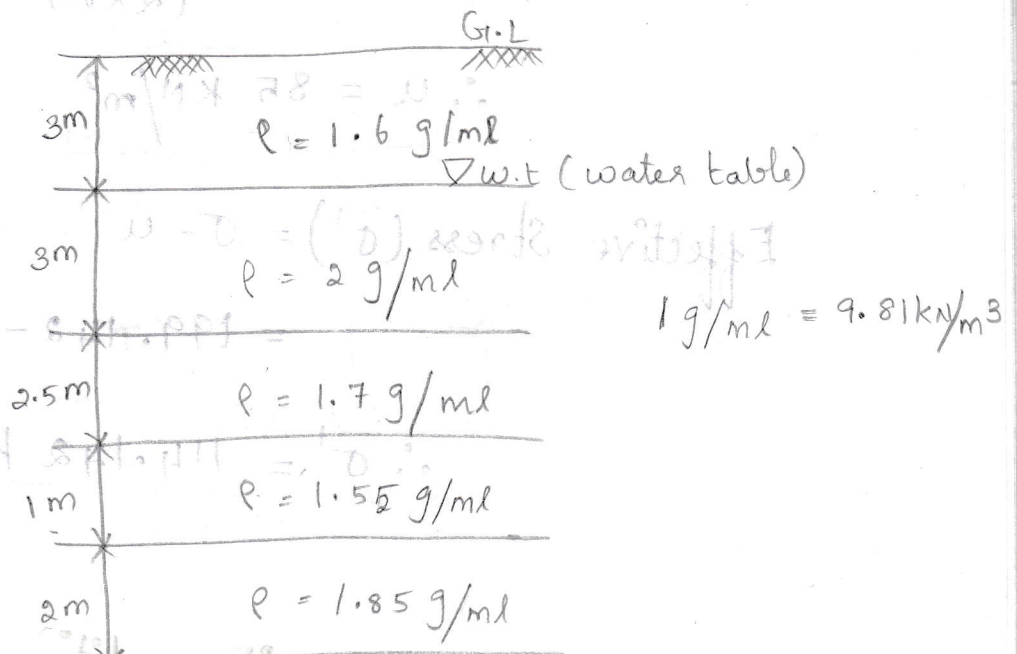 G.L
3m
ρ = 1.6 g/ml
▽ w.t (water table)
3m
ρ = 2 g/ml
1 g/ml = 9.81 kN/m3
2.5m
ρ = 1.7 g/ml
1m
ρ = 1.55 g/ml
2m
ρ = 1.85 g/ml